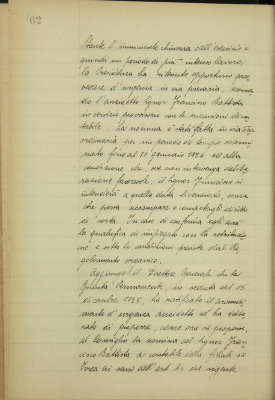 62
Stante l'imminente chiusura dell'esercizio e
quindi un periodo di più intenso lavoro,
la Presidenza ha ritenuto opportuno prov
vedere d'urgenza in via precaria, assumen
do l'avvocato signor Francisco Battista
in servizio provvisorio con le mansioni di con
tabile. La nomina è stata fatta in via stra
ordinaria per un periodo di tempo determi
nato fino al 31 gennaio 1926 ed alla
condizione che, ove non intervenga delibe
razione favorevole, il signor Francisco si
intenderà a quella data licenziato, senza
che possa accampare diritti
di sorta. In caso di conferma egli avrà
la qualifica di impiegato con la retribuzio
ne e sotto le condizioni previste dal Re
golamento organico.
Aggiunge il Direttore Generale che la
Giunta Permanente, in seduta del 15
dicembre 1925, ha ratificato il provvedi
mento d'urgenza accennato ed ha delibe
rato di proporre, come ora si propone,
al Consiglio la nomina del signor Fran
cisco Battista a contabile della filiale di
ai sensi dell'art. 32 del vigente